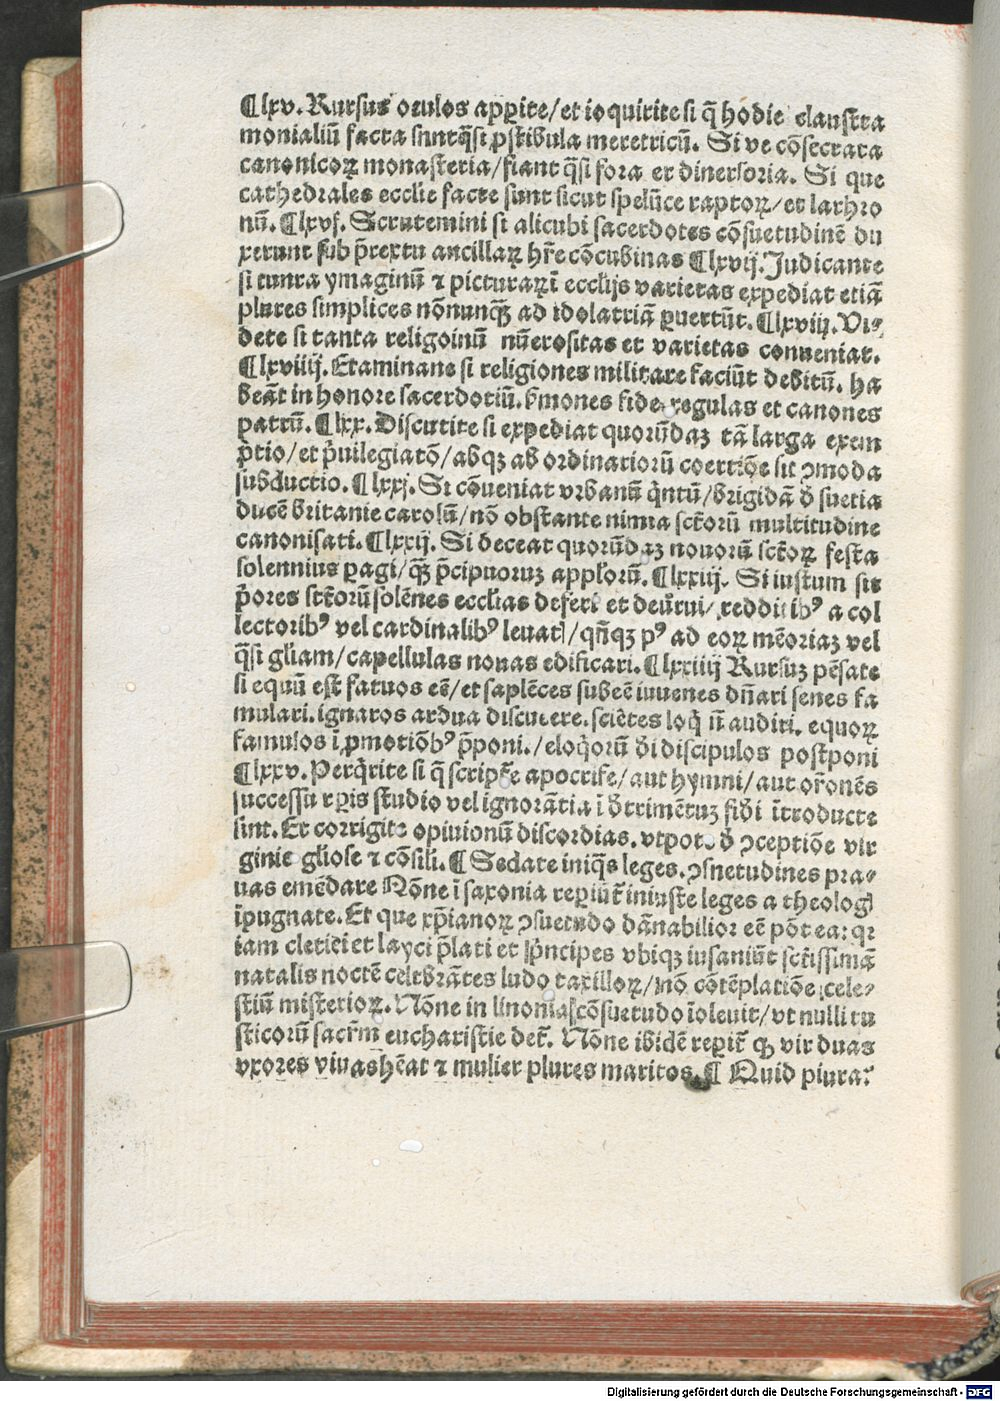 ¶lxv. Rursus oculos appite/et ioquirite si q̄ hodie claustra
monialiū facta sūntq̄si ꝓstibula meretricū. Si ve cōsecrata
canonicoꝝ monasteria/fiant q̄si fora et diuersoria. Si que
cathedrales ecclie facte sunt sicut spelūce raptoꝝ/et lathro
nū. ¶lxvj. Scrutemini si alicubi sacerdotes cōsuetudinē du
xerunt sub p̄textu ancillaꝝ hr̄e cōcubinas ¶lxvij. Judicante
si tanta ymaginū ⁊ picturaꝝ ī ecclijs varietas expediat etiā
plures simplices nōnunq̄ ad idolatriā ꝑuertūt. ¶lxviij. Vi⸗
dete si tanta religoinū nūerositas et varietas conueniat.
¶lxviiij. Etaminane si religiones militare faciūt debitū. ha
beāt in honore sacerdotiū. ẜmones fide regulas et canones
patrū. ¶lxx. Discutite si expediat quorūdaꝫ tā larga exem
p̄tio/et p̄uilegiatō/absqꝫ ab ordinatiorū coertiōe sit ꝯmoda
subductio. ¶lxxj. Si cōueniat vrbanū q̇ntū/brigidā ð suetia
ducē britanie carolū/nō obstante nimia sctōrū multitudine
canonisati. ¶lxxij. Si deceat quorūdaꝫ nouorū sctōꝝ festa
solennius ꝑagi/q̄ p̄cipuoruꝫ apploꝛū. ¶lxxiij. Si iustum sit
p̄ores sctōrū solēnes ecclias deseri et deūrui/ redditibꝰ a col
lectoribꝰ vel cardinalibꝰ leuat]/qn̄qꝫ pꝰ ad eoꝝ mēoriaꝫ vel
q̄si gliam/capellulas nouas edificari. ¶lxxiiij Rursuꝫ pēsate
si equū est fatuos eē/et sapiēces subeē iuuenes dn̄ari senes fa
mulari. ignaros ardua discutere. sciētes loq̄ n̄ auditi. equoꝝ
famulos ī ꝓmotiōbꝰ p̄poni./eloq̇orū ði discipulos postponi
¶lxxv. Perq̇rite si q̄ script̄e apocrife/aut hymni/aut or̄onēs
successu tꝑis studio vel ignorātia ī ðtrimētuꝫ fidei ītroducte
sint. Et corrigite opiuionū discordias. vtpote ð ꝯceptiōe vir
ginie gliose ⁊ cōsili. ¶ Sedate iniq̄s leges. ꝯsuetudines pra⸗
uas emēdare Nōne ī saxonia reꝑiūt̄ iniuste leges a theolog]
īpugnate. Et que xp̄ianoꝝ ꝯsuetudo dānabilior eē pōt ea: qꝛ
iam cletici et layci p̄lati et p̄ncipes vbiqꝫ iusaniūt sctīssimā
natalis noctē celebrātes ludo taxilloꝝ/nō cōtēplatiōe cele⸗
stiū misterioꝝ. Nōne in linonia cōsuetudo īoleuit/vt nulli ru
sticorū sacr̄m eucharistie det̄. Nōne ibidē reꝑit̄ ꝙ vir duas
vxores viuas hēat ⁊ mulier plures maritos. ¶ Quid plura?
Digitalisierung gefördert durch die Deutsche Forschungsgemeinschaft - DFG